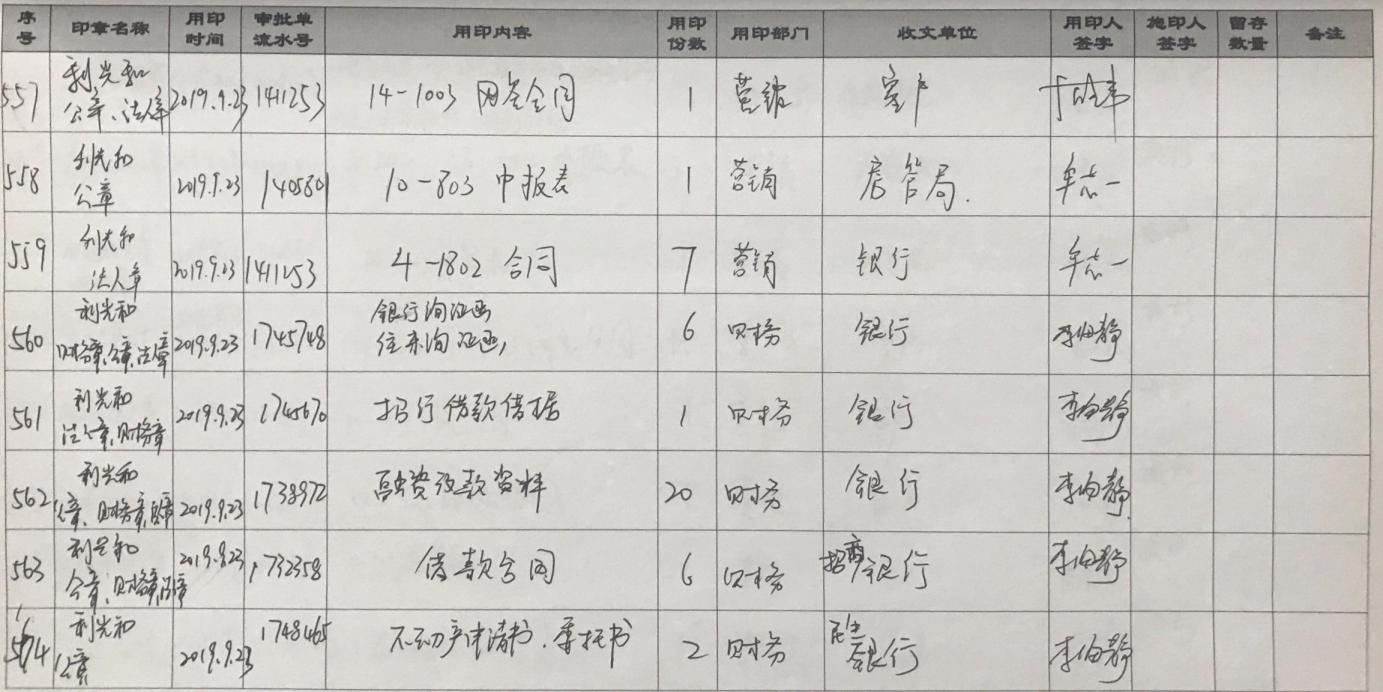 序号 印章名称 用印时间 审批单流水号 用印内容 用印份数 用印部门 收文单位 用印人签字 施印人签字 留存数量 备注
557 利光和 公章、法人章 2019.9.23 1411253 14-1003 网签合同 1 营销 客户
558 利光和 公章 2019.9.23 1405801 10-803 申报表 1 营销 房管局. 牟志一
559 利光和 法人章 2019.9.23 1411253 4-1802 合同 7 营销 银行 牟志一
560 利光和 财务章、公章、法人章 2019.9.23 1745748 银行询证函 往来询证函, 6 财务 银行 李伯静
561 利光和 法人章、财务章 2019.9.23 1745670 招行借款借据 1 财务 银行 李伯静
562 利光和 公章、财务章、法人章 2019.9.23 1738972 融资放款资料 20 财务 银行 李伯静
563 利光和 公章、财务章、法人章 2019.9.23 1732358 借款合同 6 财务 招商银行 李伯静
564 利光和 公章 2019.9.23 1748465 不动产申请书、委托书 2 财务 民生银行 李伯静